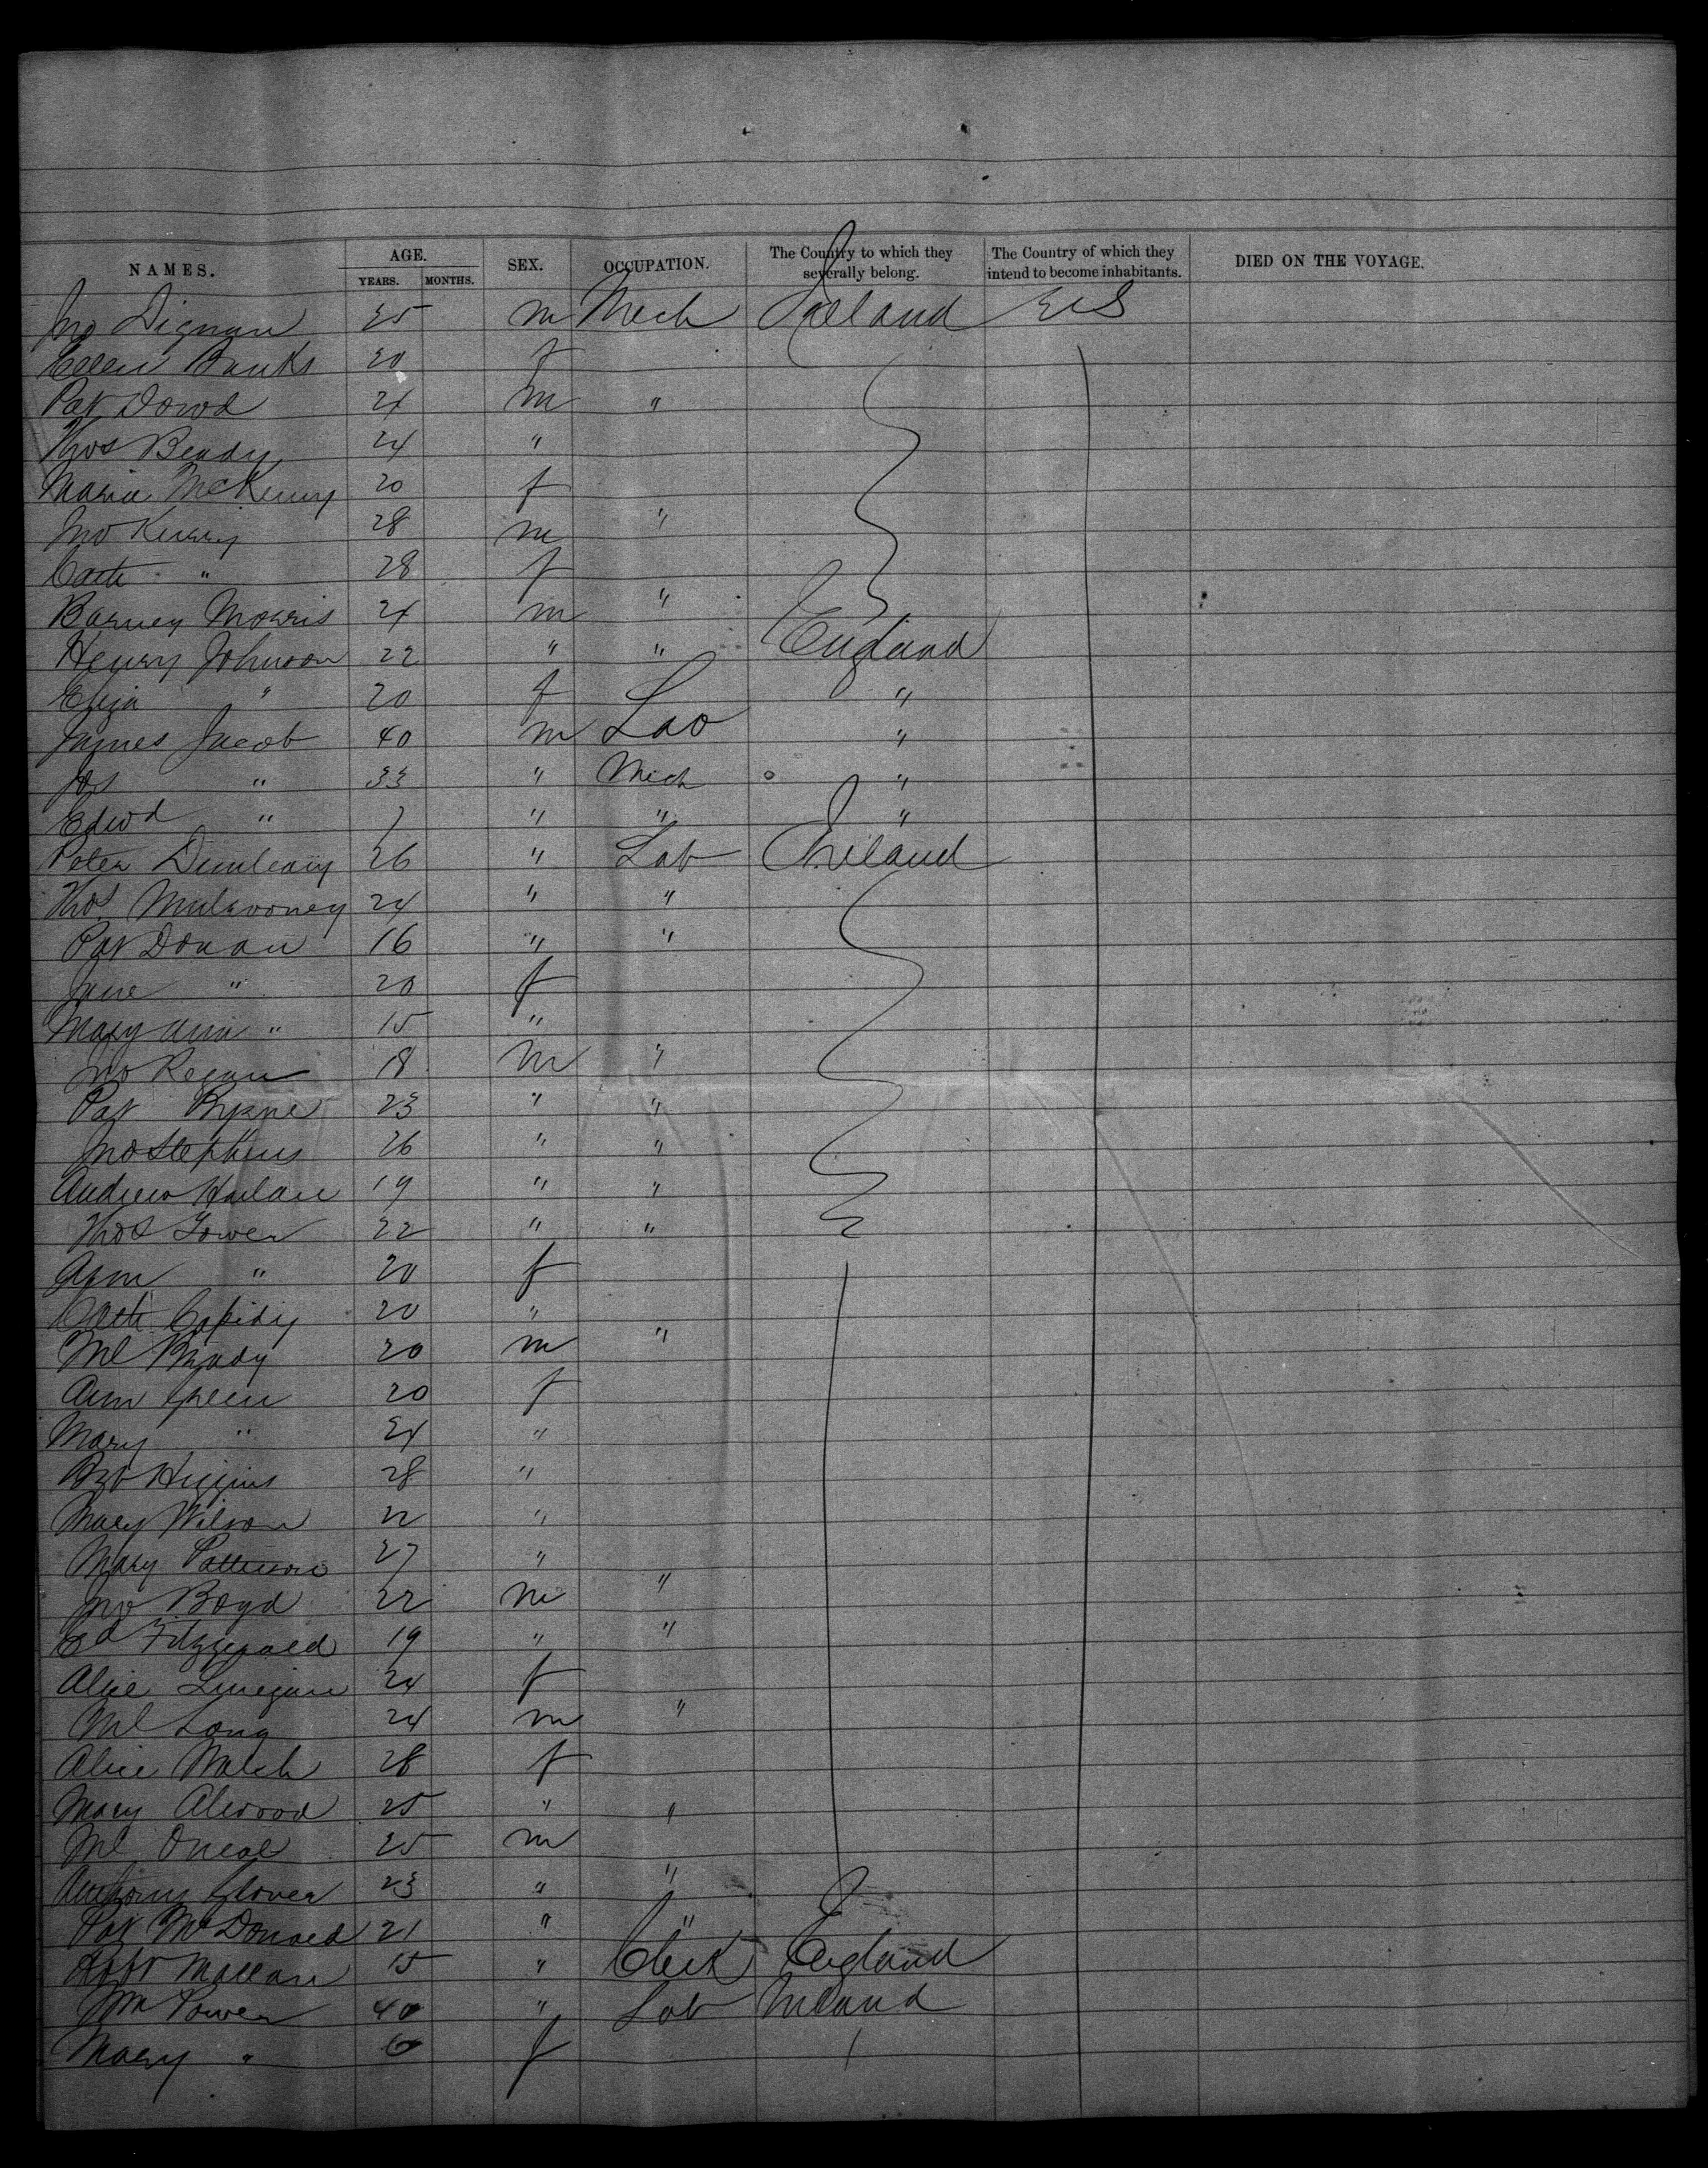 NAMES. AGE. YEARS. MONTHS. SEX. OCCUPATION. The Country to which they severally belong. The Country of which they intend to become inhabitants. DIED ON THE VOYAGE.
Jno Dignan 25 m Mech Ireland U S
Ellen Banks 20 f
Pat Dowd 24 m "
Thos Beady 24 "
Maria McKenny 20 f
Jno 28 m "
Cath " 28 f
Barney Morris 24 m "
Henry Johnson 22 " " England
Eliza " 20 f "
James Jacob 40 m Lab "
Jos " 33 " Mech "
Edwd " 7 " " "
Peter Dunleavy 26 " Lab Ireland
Thos Mulrooney 24 " "
Pat Donan 16 " "
Jane " 20 f
Mary Ann " 15 "
Jno Regan 18 m "
Pat Byrne 23 " "
Jno Stephens 26 " "
Andrew Harlan 19 " "
Thos 22 " "
Ann " 20 f
Cath 20 "
Ml Brady 20 m "
Ann Green 20 f
Mary " 24 "
Bgt Higgins 28 "
Mary Wilson 22 "
Mary Patterson 27 "
Jno Boyd 22 m "
Ed Fitzgerald 19 " "
Alice Linegan 24 f
Ml Long 24 m "
Alice Walsh 28 f
Mary Alwood 25 " "
Ml Oneal 25 m
Anthony Glover 23 " "
Pat McDonald 21 " "
Robt Mallan 15 " Clerk England
Wm Power 40 " Lab Ireland
Mary " 6 f